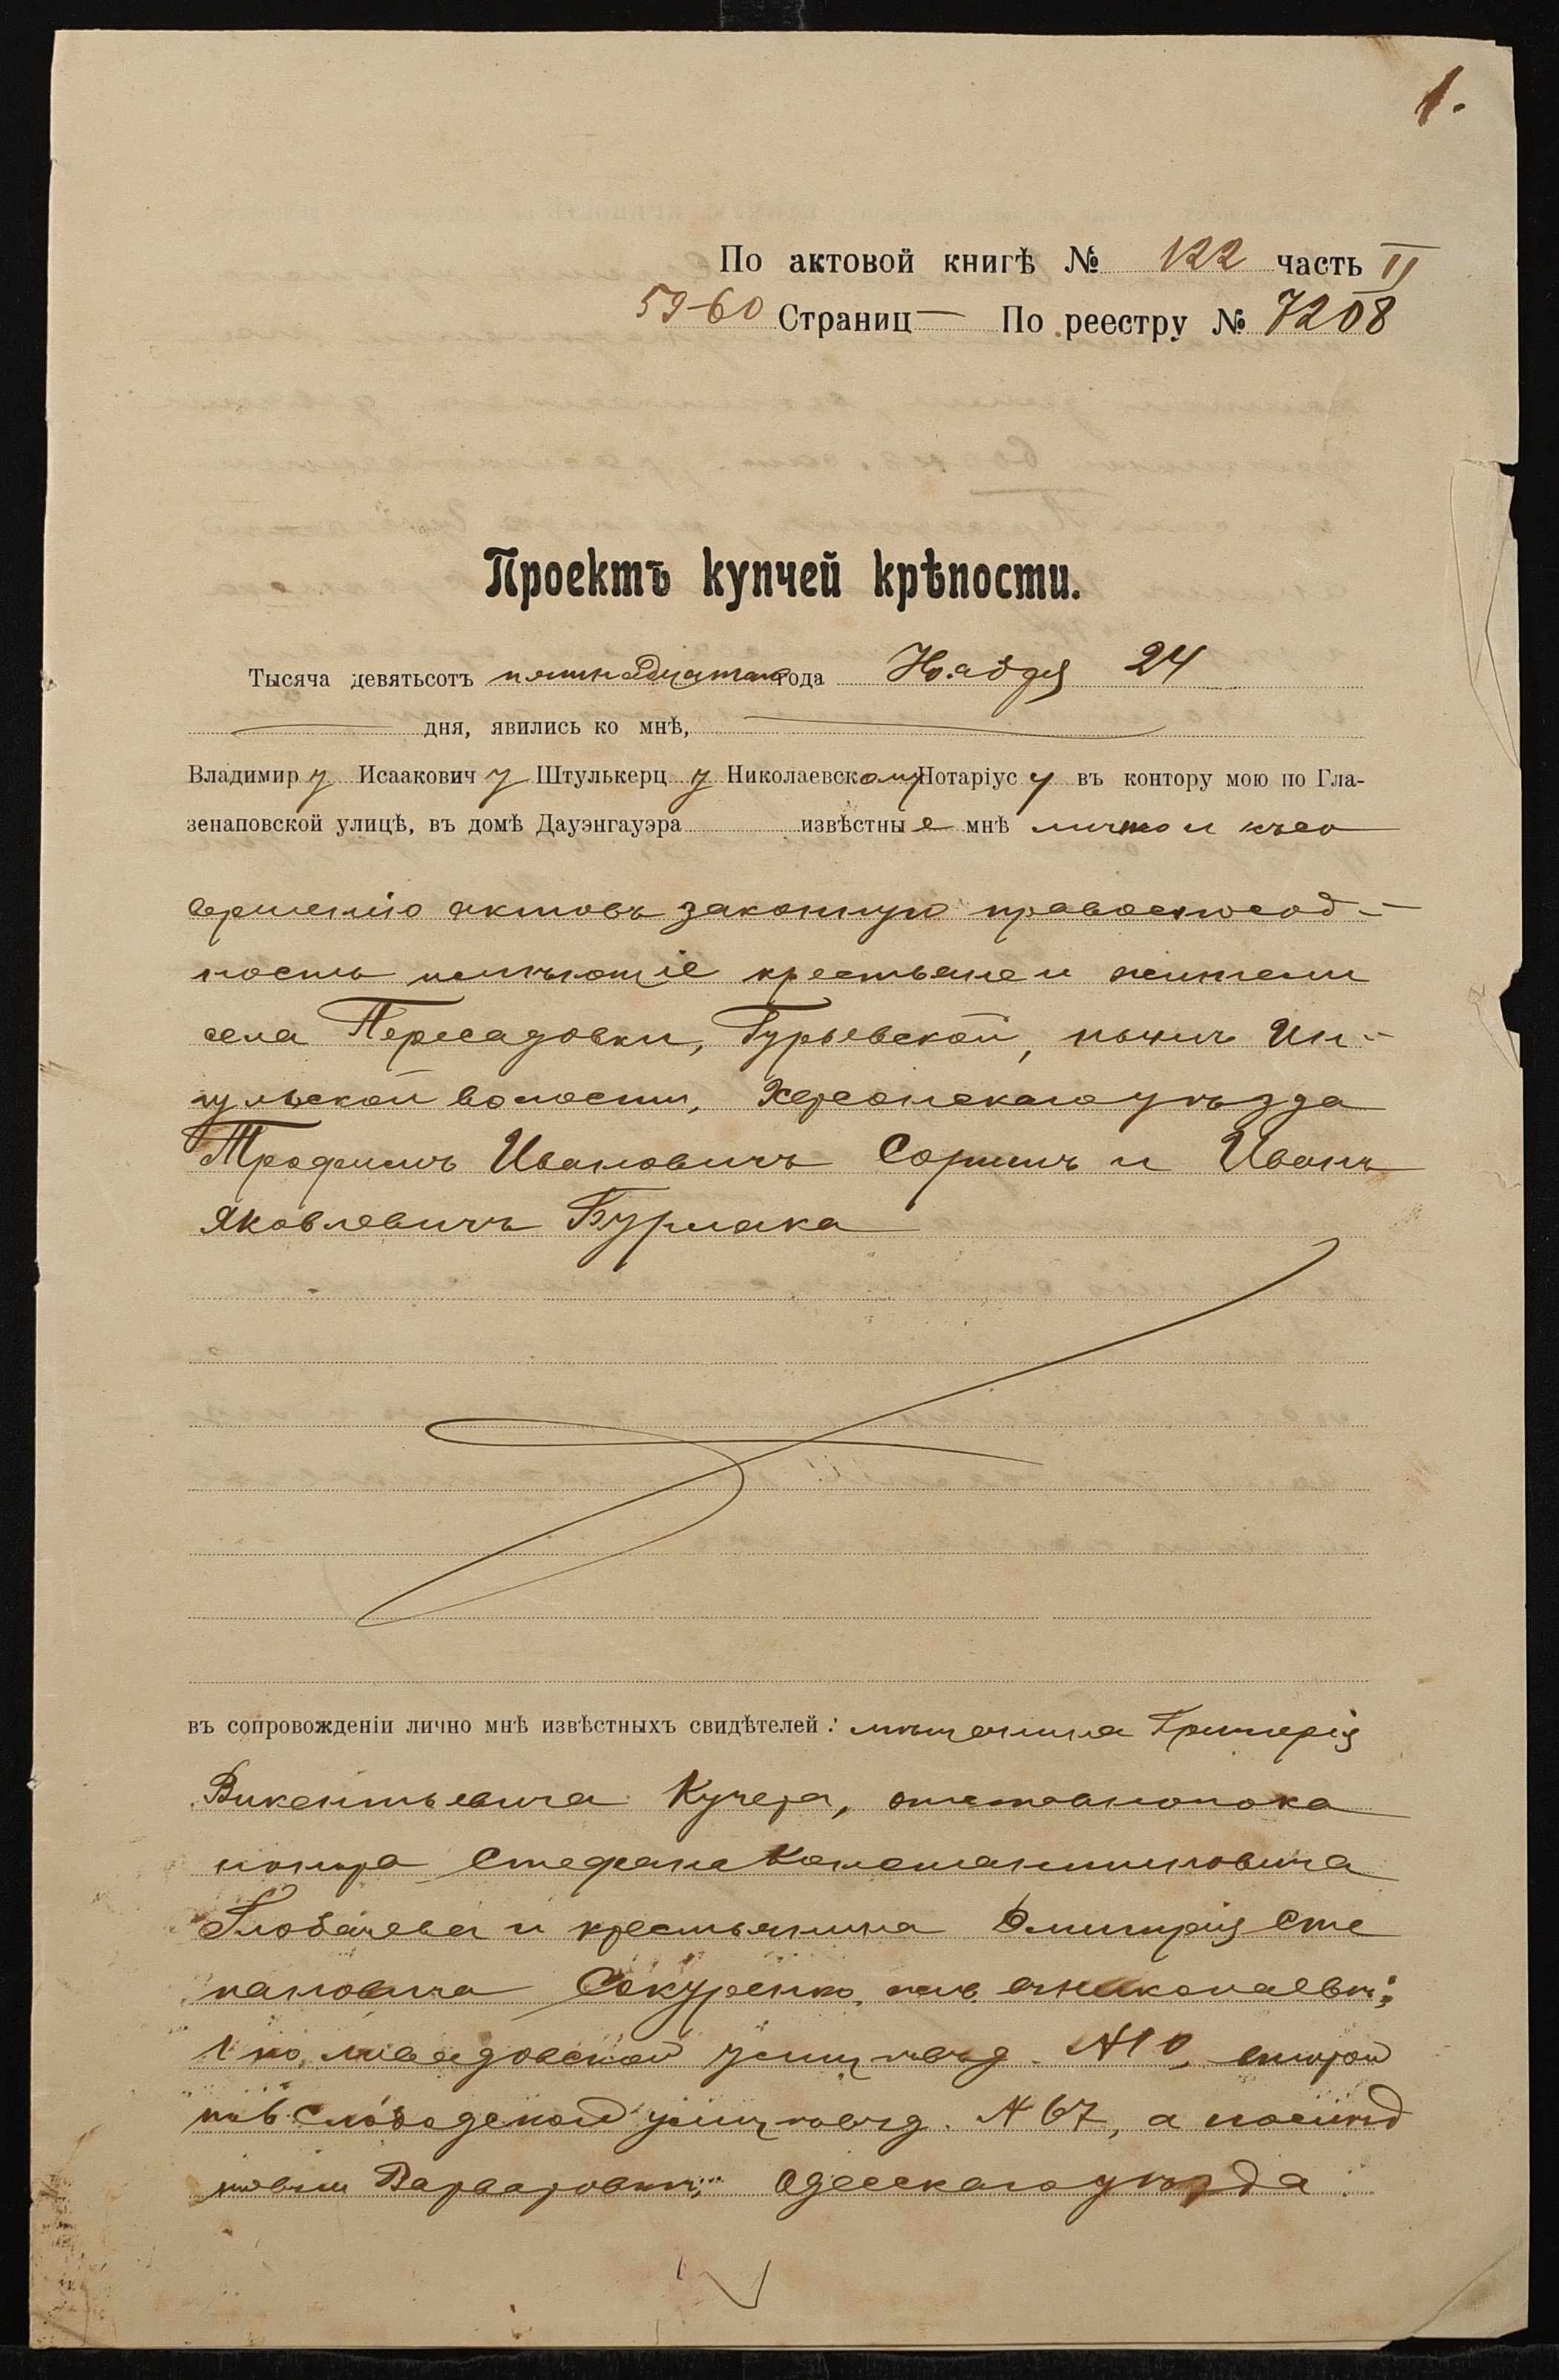 1.
По актовой книгѣ № 122 часть II
59-60 Страниц— По реестру № 7208
Проектъ купчей крѣпости.
Тысяча девятьсотъ пятнадцатаго года Ноября 24
дня, явились ко мнѣ,
Владимиру Исааковичу Штулькерцу Николаевскому Нотаріусу въ контору мою по Гла-
зенаповской улицѣ, въ домѣ Дауэнгауэра извѣстные мнѣ лично и къ со
вершенію актовъ законную правоспособ-
ность имѣющіе крестьяне и жители
села Пересадовки, Гурьевской, нынѣ Ин-
гульской волости, Херсонскаго уѣзда
Трофимъ Ивановичъ Соримъ и Иванъ
Яковлевичъ Бурлака
въ сопровожденіи лично мнѣ извѣстныхъ свидѣтелей: мѣщанина Григорія
Викентьевича Кучера, отставного ка
нонира Стефана Константиновича
Глобачева и крестьянина Дмитрія Сте
пановича Сокуренко, въ Николаевѣ:
1 по улиц въ д. №10, второй
по Слободской улиц въ д. № 67, а послѣд
Варваровкѣ, Одесскаго уѣзда